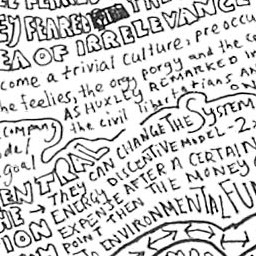 FEARED THE
EY FEARED THE
EA OF IRRELEVANCE
come a trivial culture, preoccu
the feelies, the orgy porgy and the ce
AS HUXLEY REMARKED IN
the civil libertarians AN
ON
company
odel
goal
CAN CHANGE THE SYSTEM
THEY
ENERGY DISCENTIVE MODEL - 2x
EXPENSE AFTER A CERTAIN
POINT THEN THE MONEY G
ENTRAL
HE
ION
ENVIRONMENTAL FUN